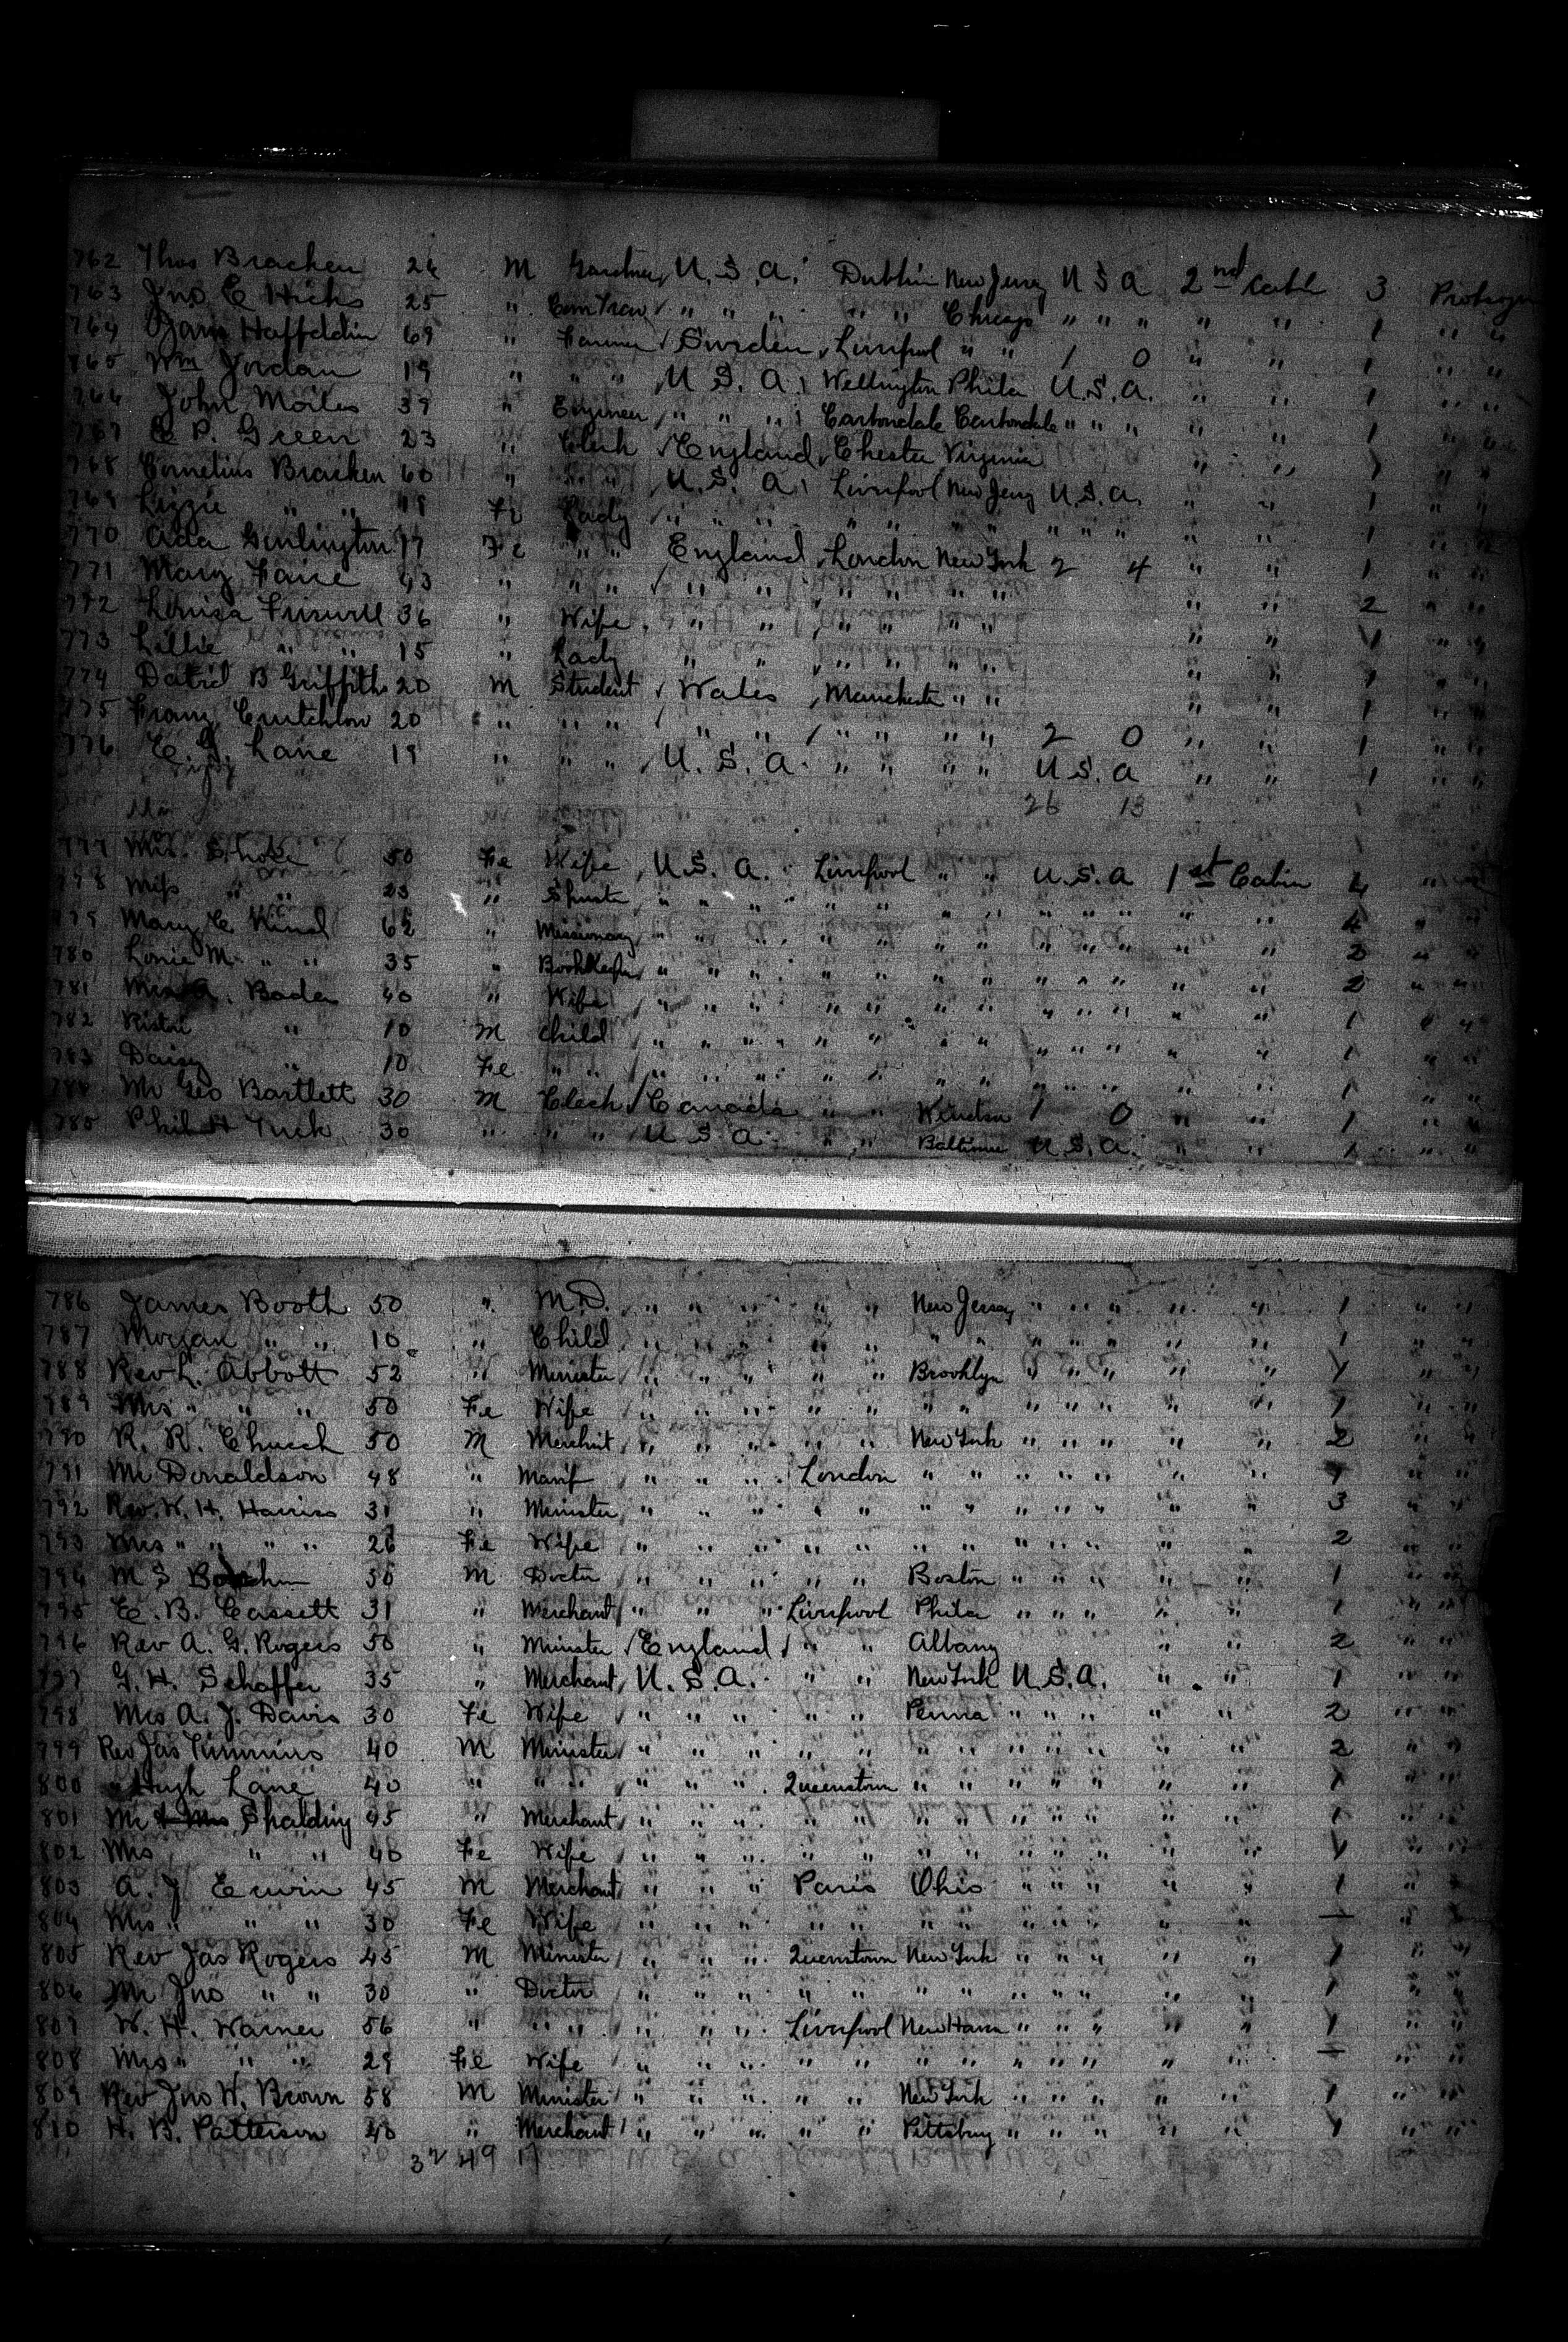 762 Thos Bracken 26 M Gardner U.S.A. Dublin New Jersy U S A 2nd Cabin 3
763 Jno. C Hicks 25 " Com Trav " " " " " Chicago " " " " " 1 " "
764 69 " Farmer Sweden Liverpool " " 1 0 " " 1 " "
765 Wm Jordan 19 " " " U.S.A. Wellington Phila U.S.A. " " 1 " "
766 John Moiles 39 " Engineer " " " Carbondale Carbondale " " " " " 1 " "
767 C P. Green 23 " Clerk England Chester Virginia " " 1 " "
768 Cornelius Bracken 60 " " " U.S.A. Liverpool New Jersy U.S.A. " " 1 " "
769 Lizzie " " 19 Fe Lady " " " " " " " " " " " " 1 " "
770 Ada 19 Fe " " England London New York 2 4 " " 1 " "
771 Mary 43 " " " " " " " " " " " 2 " "
772 Louisa 36 " Wife " " " " " " " " 1 " "
773 Lillie " " 15 " Lady " " " " " " " " 1 " "
774 David B Griffiths 20 M Student Wales Manchester " " " " 1 " "
775 Franz Crutchlow 20 " " " " " " " " " 2 0 " " 1 " "
776 E. G. Lane 19 " " " U.S.A. " " " " U.S.A " " 1 " "
26 13
777 Mrs. 50 Fe Wife U.S.A. Liverpool " " U.S.A 1st Cabin 4 " "
778 Miss " " 23 " " " " " " " " " " " " " 4 " "
779 Mary C Kind 62 " Missionary " " " " " " " " " " " " 2 " "
780 Lonie M. " " 35 " Bookkeeper " " " " " " " " " " " " 2 " "
781 Mrs A. Bader 40 " Wife " " " " " " " " " " " " 1 " "
782 " 10 M Child " " " " " " " " " " " " 1 " "
783 Daisy " 10 Fe " " " " " " " " " " " " " " 1 " "
784 Mr Geo Bartlett 30 M Clerk Canada " " Windsor 1 0 " " 1 " "
785 Phil H Tuck 30 " " " U.S.A. " " Baltimore U.S.A. " " 1 " "
786 James Booth 50 " M.D. " " " " " New Jersey " " " " " 1 " "
787 Morgan " " 10 " Child " " " " " " " " " " " " 1 " "
788 Rev L. Abbott 52 " Minister " " " " " Brooklyn " " " " " 1 " "
789 Mrs " " " 50 Fe Wife " " " " " " " " " " " " 1 " "
790 R. R. Church 50 M Merchnt " " " " " New York " " " " " 2 " "
791 Mr Donaldson 48 " Manf " " " London " " " " " " " 1 " "
792 Rev. W. H. Harriss 31 " Minister " " " " " " " " " " " " 3 " "
793 Mrs " " " " 26 Fe Wife " " " " " " " " " " " " 2 " "
794 M S 50 M Doctor " " " " " Boston " " " " " 1 " "
795 E. B. Cassett 31 " Merchant " " " Liverpool Phila " " " " " 1 " "
796 Rev A. G. Rogers 50 " Minister England " " Albany " " 2 " "
797 G. H. Schaffer 35 " Merchant U.S.A. " " New York U.S.A. " " 1 " "
798 Mrs A. J. Davis 30 Fe Wife " " " " " Penna " " " " " 2 " "
799 Rev Jas Timmins 40 M Minister " " " " " " " " " " " " 2 " "
800 Hugh Lane 40 " " " " " " Queenstown " " " " " " " 1 " "
801 Mr & Mrs Spalding 45 " Merchant " " " " " " " " " " " " 1 " "
802 Mrs " " 40 Fe Wife " " " " " " " " " " " " 1 " "
803 A. J Erwin 45 M Merchant " " " Paris Ohio " " " " " 1 " "
804 Mrs " " " 30 Fe Wife " " " " " " " " " " " " — " "
805 Rev Jas Rogers 45 M Minister " " " Queenstown New York " " " " " 1 " "
806 Mr Jno " " 30 " Doctor " " " " " " " " " " " " 1 " "
807 W. H. Warner 56 " " " " " " Liverpool New Haven " " " " " 1 " "
808 Mrs " " " 29 Fe Wife " " " " " " " " " " " " — " "
809 Rev Jno W. Brown 58 M Minister " " " " " New York " " " " " 1 " "
810 H. B. Patterson 40 " Merchant " " " " " Pittsburg " " " " " 1 " "
32 49 17